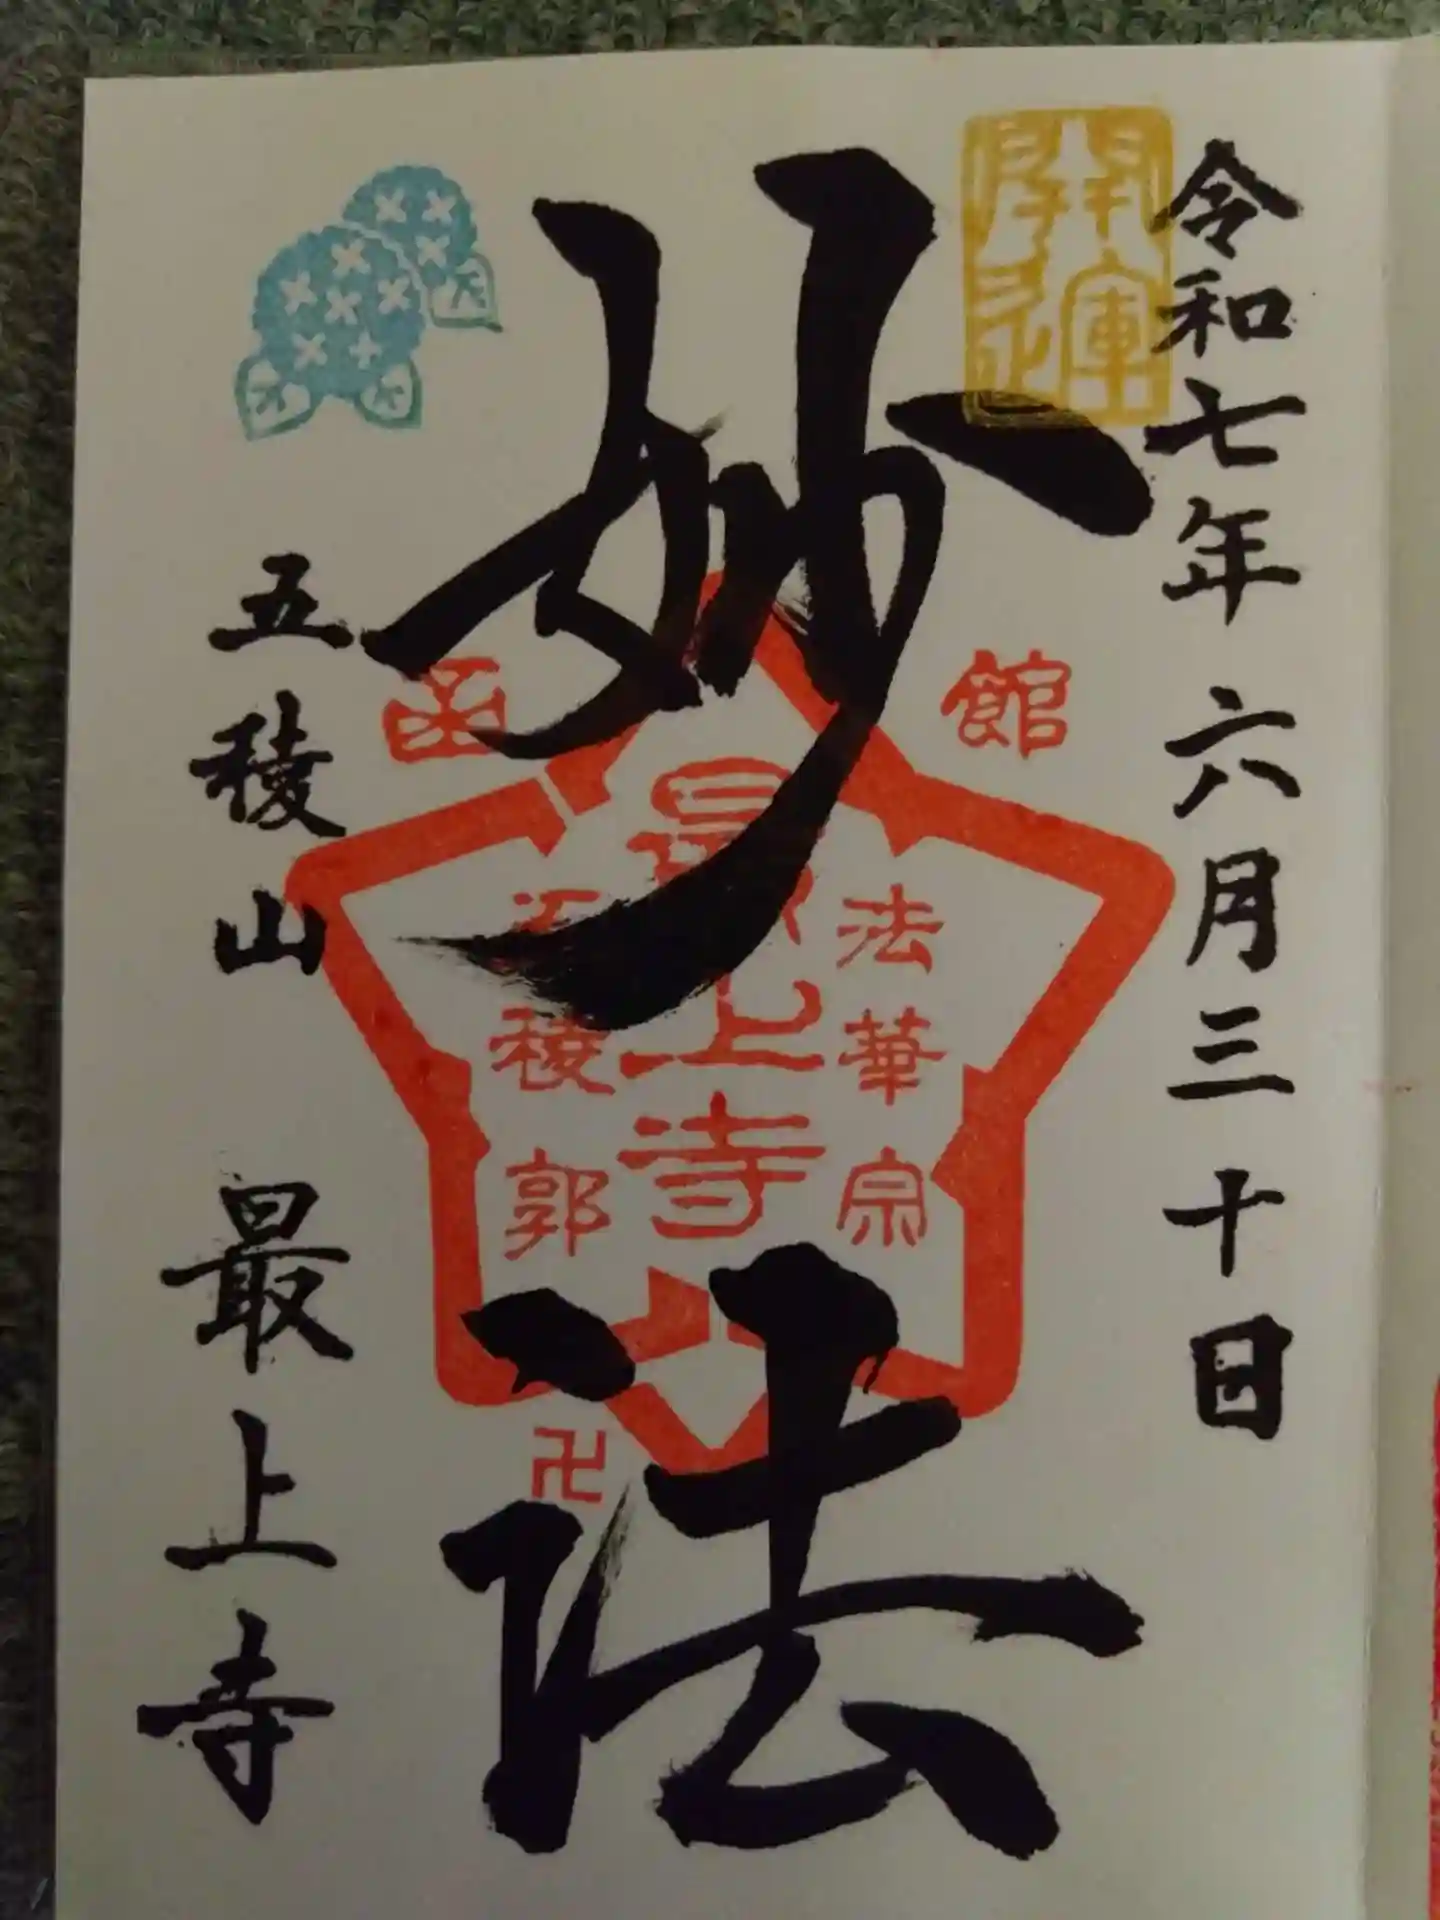 令和七年六月三十日
開運
妙法
函館
法華宗
最上寺
五稜郭
卍
五稜山 最上寺